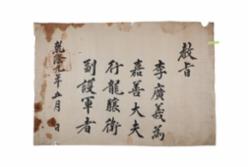 敎旨
李廣義爲
嘉善大夫
行龍驤衛
副護軍者
乾隆九年五月 日